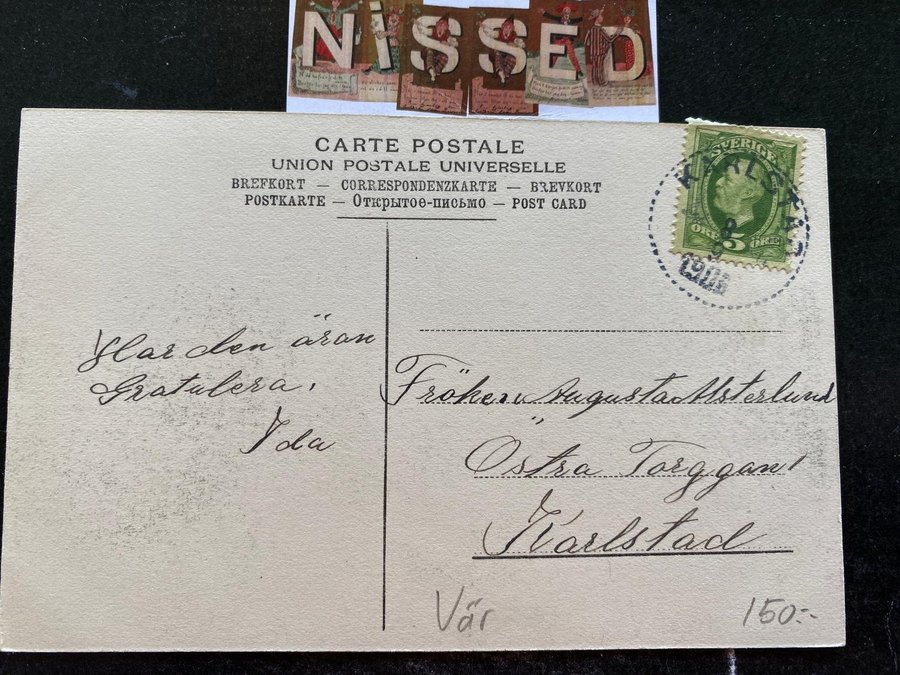 NISSED
CARTE POSTALE
UNION POSTALE UNIVERSELLE
BREFKORT — CORRESPONDENZKARTE — BREVKORT
POSTKARTE — Открытое-письмо — POST CARD
SVERIGE
KARLSTAD
8
ÖRE 5 ÖRE
Har den äran
Gratulera.
Ida
Fröken Augusta Alsterlund
Östra Torggan
Karlstad
Vär
150:-